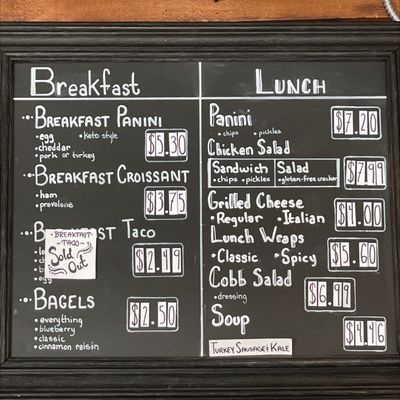 Breakfast
Breakfast Panini
• egg • keto style
• cheddar
• pork or turkey
$5.30
Breakfast Croissant
• ham
• provolone
$3.75
B st Taco
• Breakfast •
• Taco •
Sold Out
egg
$2.49
Bagels
• everything
• blueberry
• classic
• cinnamon raisin
$2.50
Lunch
Panini
• chips • pickles
$7.20
Chicken Salad
Sandwich Salad
• chips • pickles • gluten-free cracker
$7.99
Grilled Cheese
• Regular • Italian
$4.00
Lunch Wraps
• Classic • Spicy
$5.60
Cobb Salad
• dressing
$6.99
Soup
Turkey Sausage & Kale
$4.46